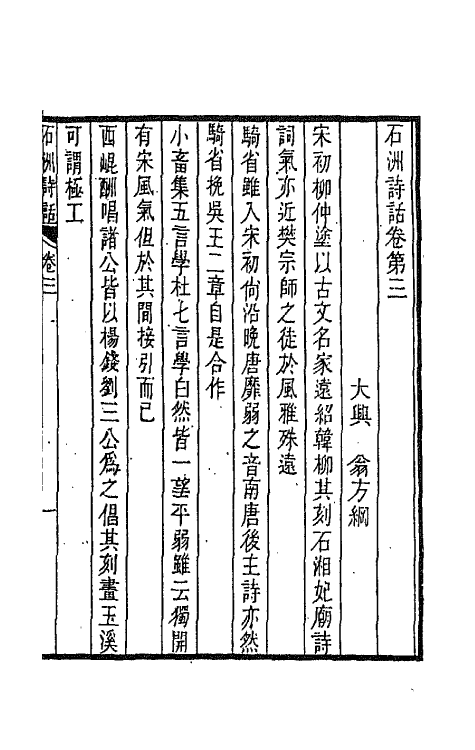 石洲詩話卷第三
大興　翁方綱
宋初柳仲塗以古文名家遠紹韓柳其刻石湘妃廟詩
詞氣亦近樊宗師之徒於風雅殊遠
騎省雖入宋初尙沿晚唐靡弱之音南唐後主詩亦然
騎省挽吳王二章自是合作
小畜集五言學杜七言學白然皆一望平弱雖云獨開
有宋風氣但於其間接引而已
西崐酬唱諸公皆以楊錢劉三公爲之倡其刻畫玉溪
可謂極工
石洲詩話　卷三　一